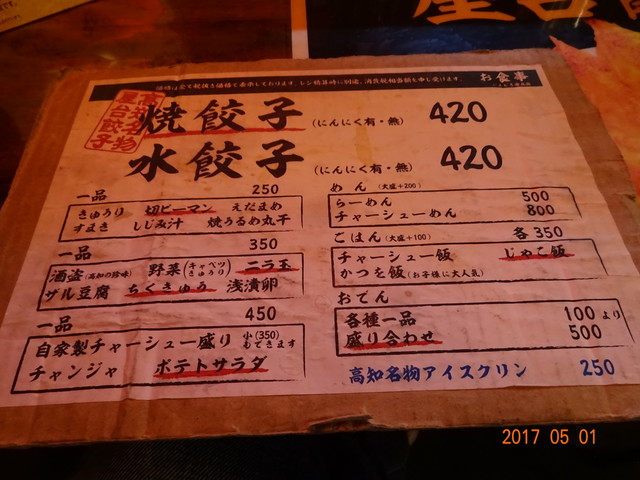 価格は全て税抜き価格で表示しております。レジ精算時に別途、消費税相当額を申し受けます。
お食事
高知名物
屋台餃子
焼餃子 (にんにく有・無) 420
水餃子 (にんにく有・無) 420
一品 250
きゅうり 切ピーマン えだまめ
すまき しじみ汁 焼うるめ丸干
一品 350
酒盗(高知の珍味) 野菜(キャベツ きゅうり) ニラ玉
ザル豆腐 ちくきゅう 浅漬卵
一品 450
自家製チャーシュー盛り 小(350)もできます
チャンジャ ポテトサラダ
めん (大盛+200)
らーめん 500
チャーシューめん 800
ごはん (大盛+100) 各350
チャーシュー飯 じゃこ飯
かつを飯(お子様に大人気)
おでん
各種一品 100より
盛り合わせ 500
高知名物アイスクリン 250
2017 05 01